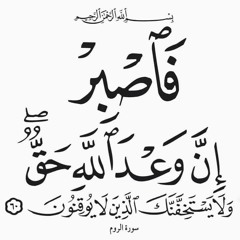 بِسْمِ ٱللَّهِ ٱلرَّحْمَٰنِ ٱلرَّحِيمِ
فَٱصْبِرْ
إِنَّ وَعْدَ ٱللَّهِ حَقٌّۖ
وَلَا يَسْتَخِفَّنَّكَ ٱلَّذِينَ لَا يُوقِنُونَ ٦٠
سورة الروم